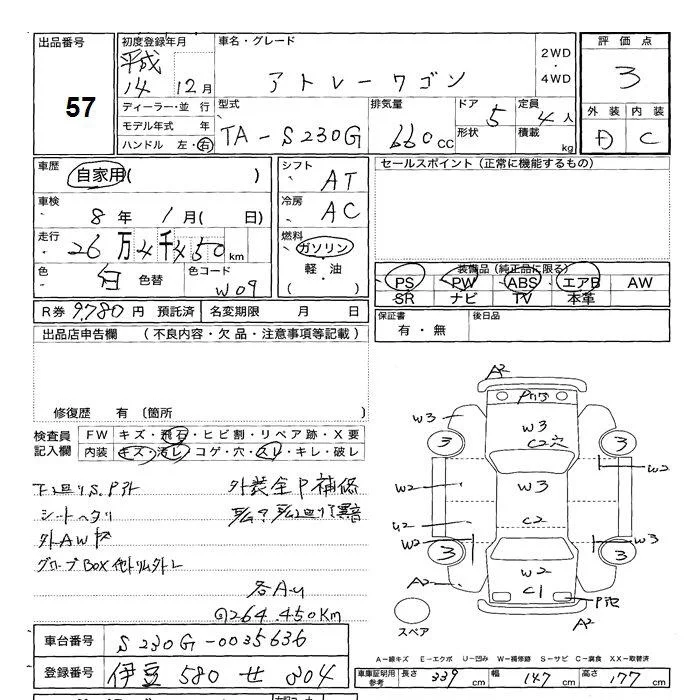 出品番号
57
初度登録年月
平成
14 12月
ディーラー・並 行
モデル年式 年
ハンドル 左・右
車名・グレード
アトレーワゴン
2WD
・
4WD
型式
TA-S230G
排気量
660cc
ドア 5
形状
定員 4人
積載 kg
評価点
3
外装 内装
D C
車歴
自家用( )
車検
8年 1月( 日)
走行
26万4千450km
色
白 色替
色コード
W09
シフト
AT
冷房
AC
燃料
ガソリン
軽・油
( )
セールスポイント(正常に機能するもの)
装備品(純正品に限る)
PS PW ABS エアB AW
SR ナビ TV 本革
R券 9,780円 預託済 名変期限 月 日
保証書
有・無
後日品
出品店申告欄 (不良内容・欠品・注意事項等記載)
修復歴 有 (箇所 )
検査員
記入欄
FW キズ・飛石・ヒビ割・リペア跡・X要
内装 キズ・汚レ・コゲ・穴・スレ・キレ・破レ
下廻りS,P外
シートヘタリ
外AWキズ
グローブBOX他トリム外レ
外装全P補修
各AU
264.450Km
A2
W3
W3
C2穴
3
3
W2
W2
W3
U2
C2
W2
W3
3
3
A2
W2
C1
A2
スペア
A-線キズ E-エクボ U-凹み W-補修跡 S-サビ C-腐食 XX-取替済
車台番号 S230G-0035636
登録番号 伊豆 580 せ 304
車庫証明用
参考
長さ 339 cm 幅 147 cm 高さ 177 cm